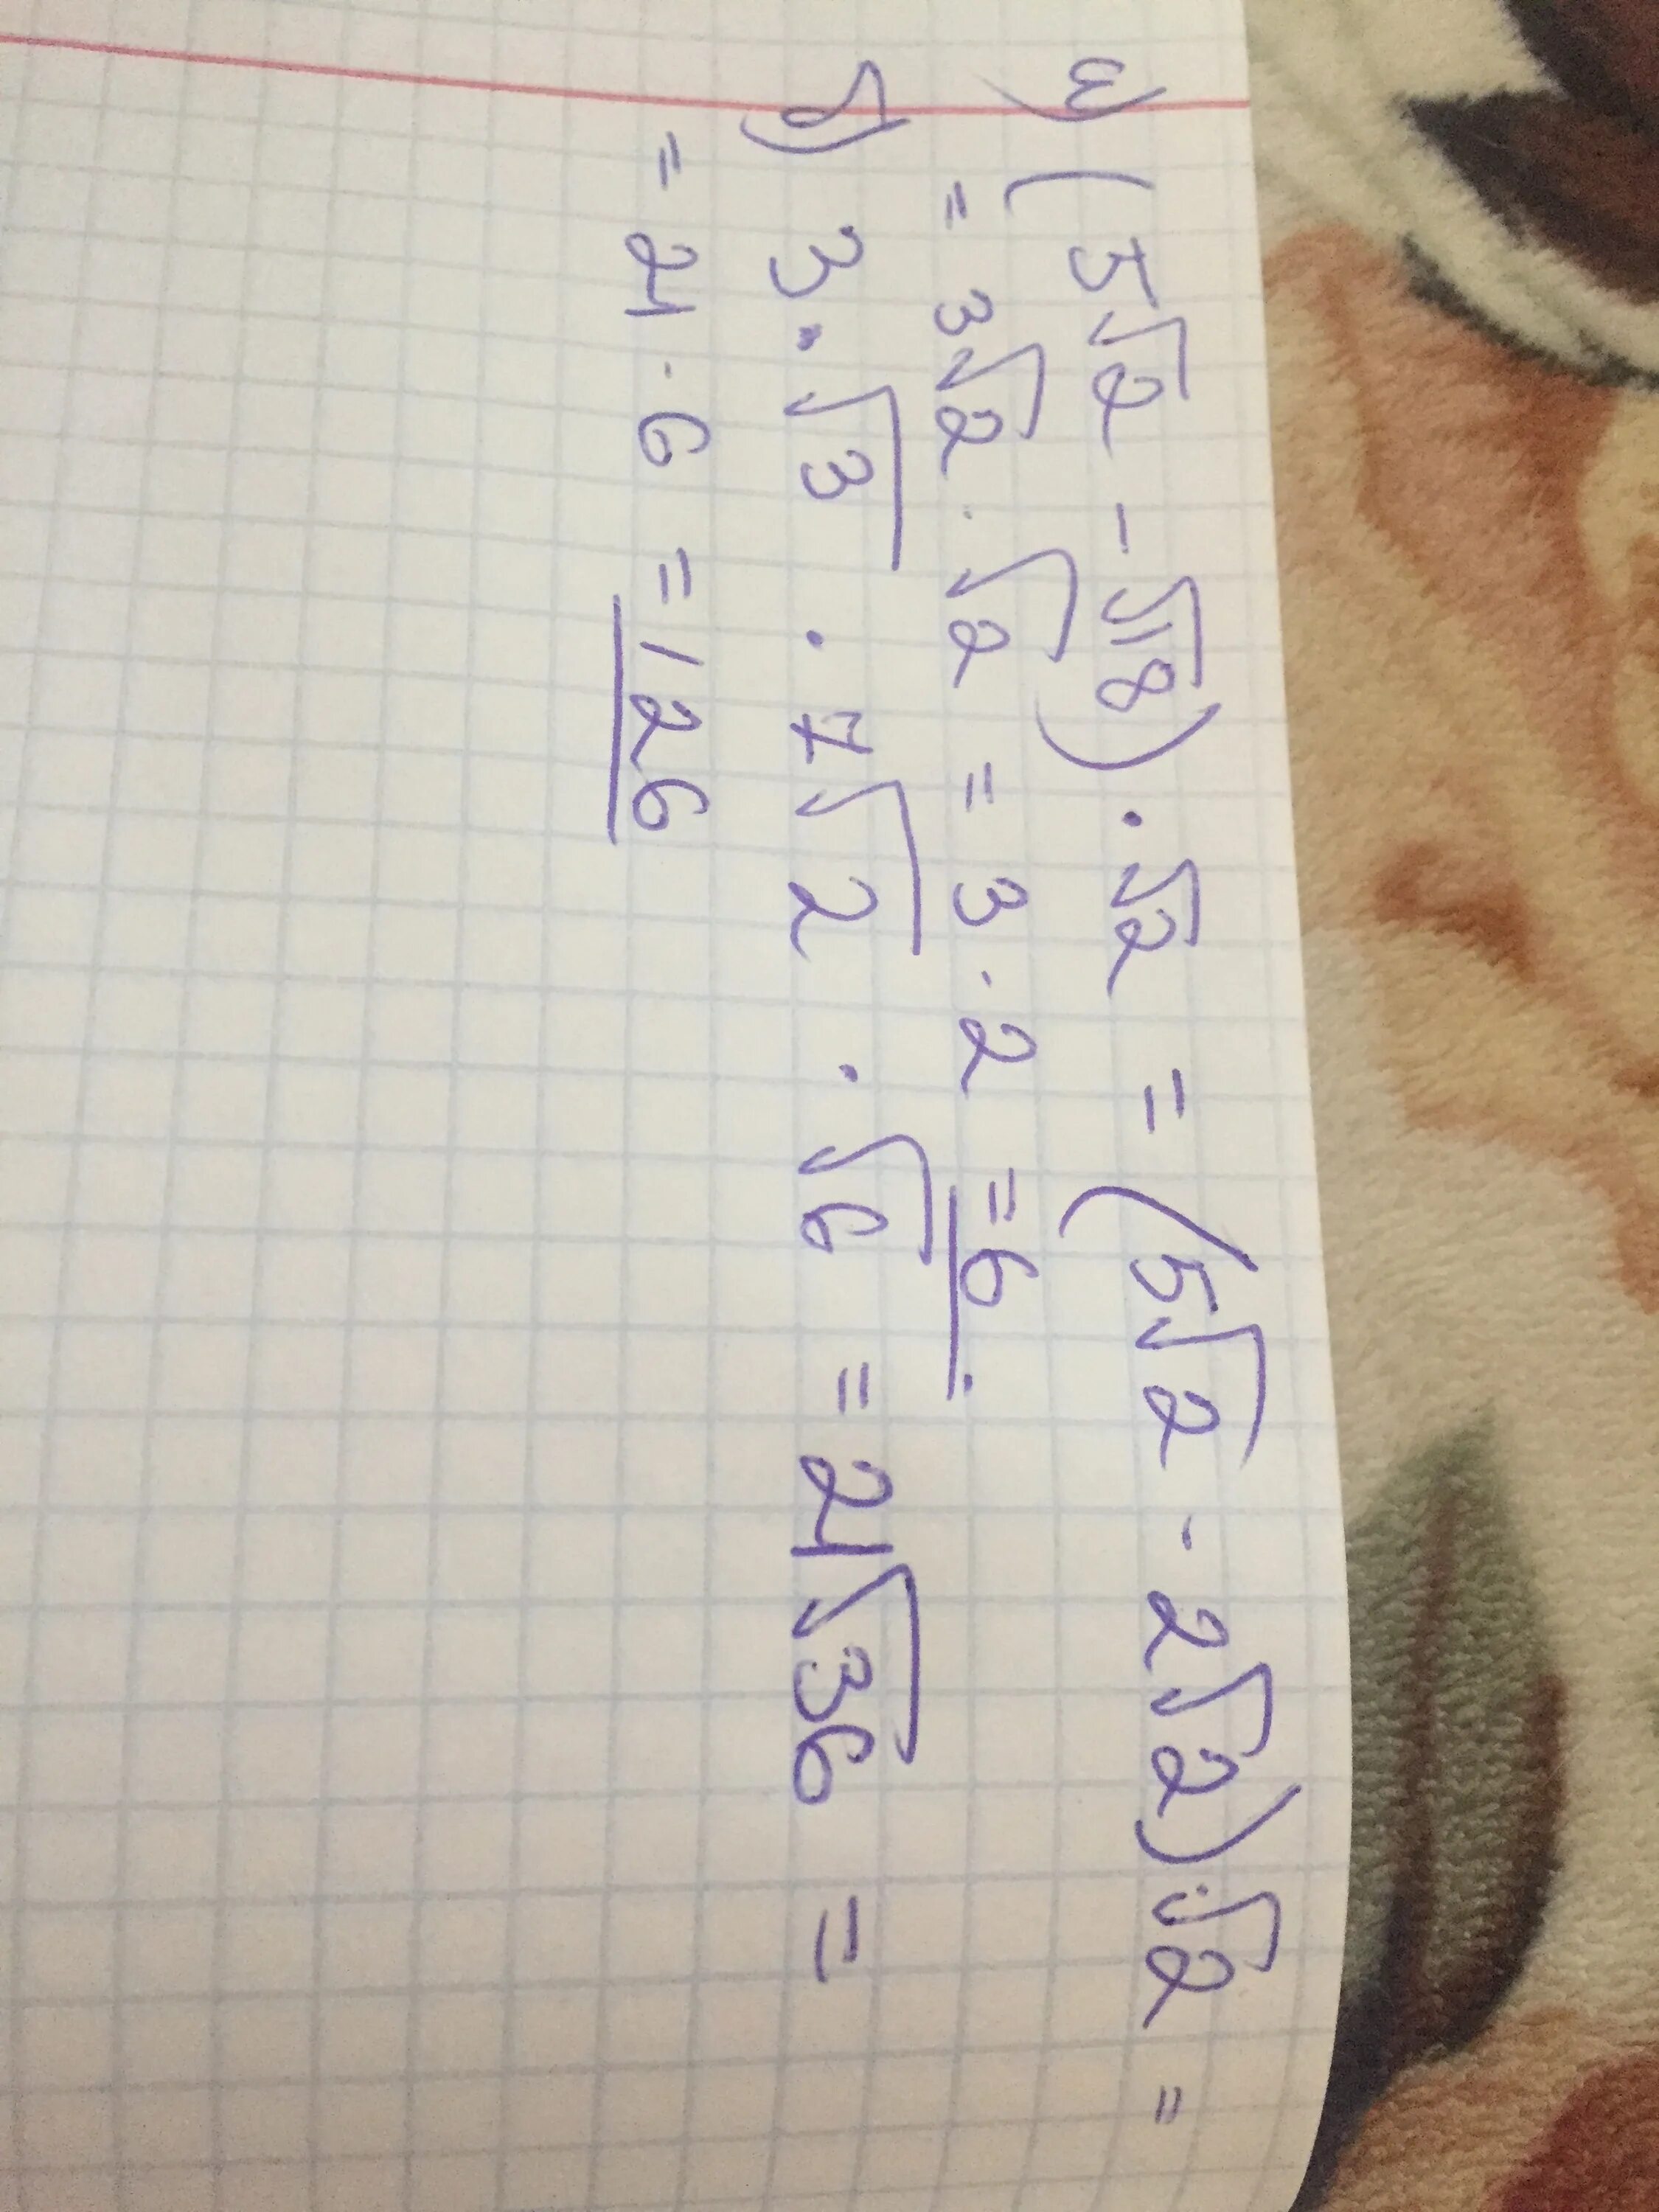 а) (5√2 - √18) · √2 = (5√2 - 2√2) · √2 =
= 3√2 · √2 = 3 · 2 = 6.
б) 3 · √3 · 7√2 · √6 = 21√36 =
= 21 · 6 = 126